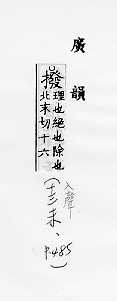 廣韻
撥理也絕也除也
北末切十六
入聲
(十三末、P.485)